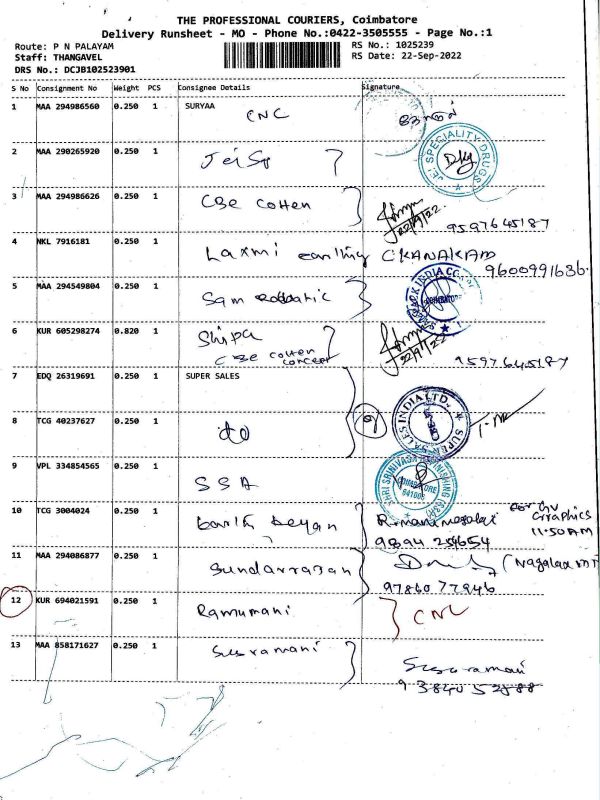 THE PROFESSIONAL COURIERS, Coimbatore
Delivery Runsheet - MO - Phone No.:0422-3505555 - Page No.:1
Route: P N PALAYAM
RS No.: 1025239
Staff: THANGAVEL
RS Date: 22-Sep-2022
DRS No.: DCJB102523901
S No Consignment No Weight PCS Consignee Details Signature
1 MAA 294986560 0.250 1 SURYAA
CNC
2 MAA 290265920 0.250 1
JEI SPECIALITY DRUGS
3 MAA 294986626 0.250 1 CBE Cotten
22/9/22. 9597645187
4 NKL 7916181 0.250 1 Laxmi CKANAKAM
9600991636.
5 MAA 294549804 0.250 1 Sam
6 KUR 605298274 0.820 1 Shipa
CBE Cotten concept
22/9/22 9597645187
7 EDQ 26319691 0.250 1 SUPER SALES
8 TCG 40237627 0.250 1 do
SUPER SALES INDIA LTD.
9 VPL 334854565 0.250 1 SSA
COIMBATORE
10 TCG 3004024 0.250 1
For GV Graphics
11:50 AM
11 MAA 294086877 0.250 1 Sundarrajan
9786077946
12 KUR 694021591 0.250 1 Ramumani CNC
13 MAA 858171627 0.250 1 Susramani